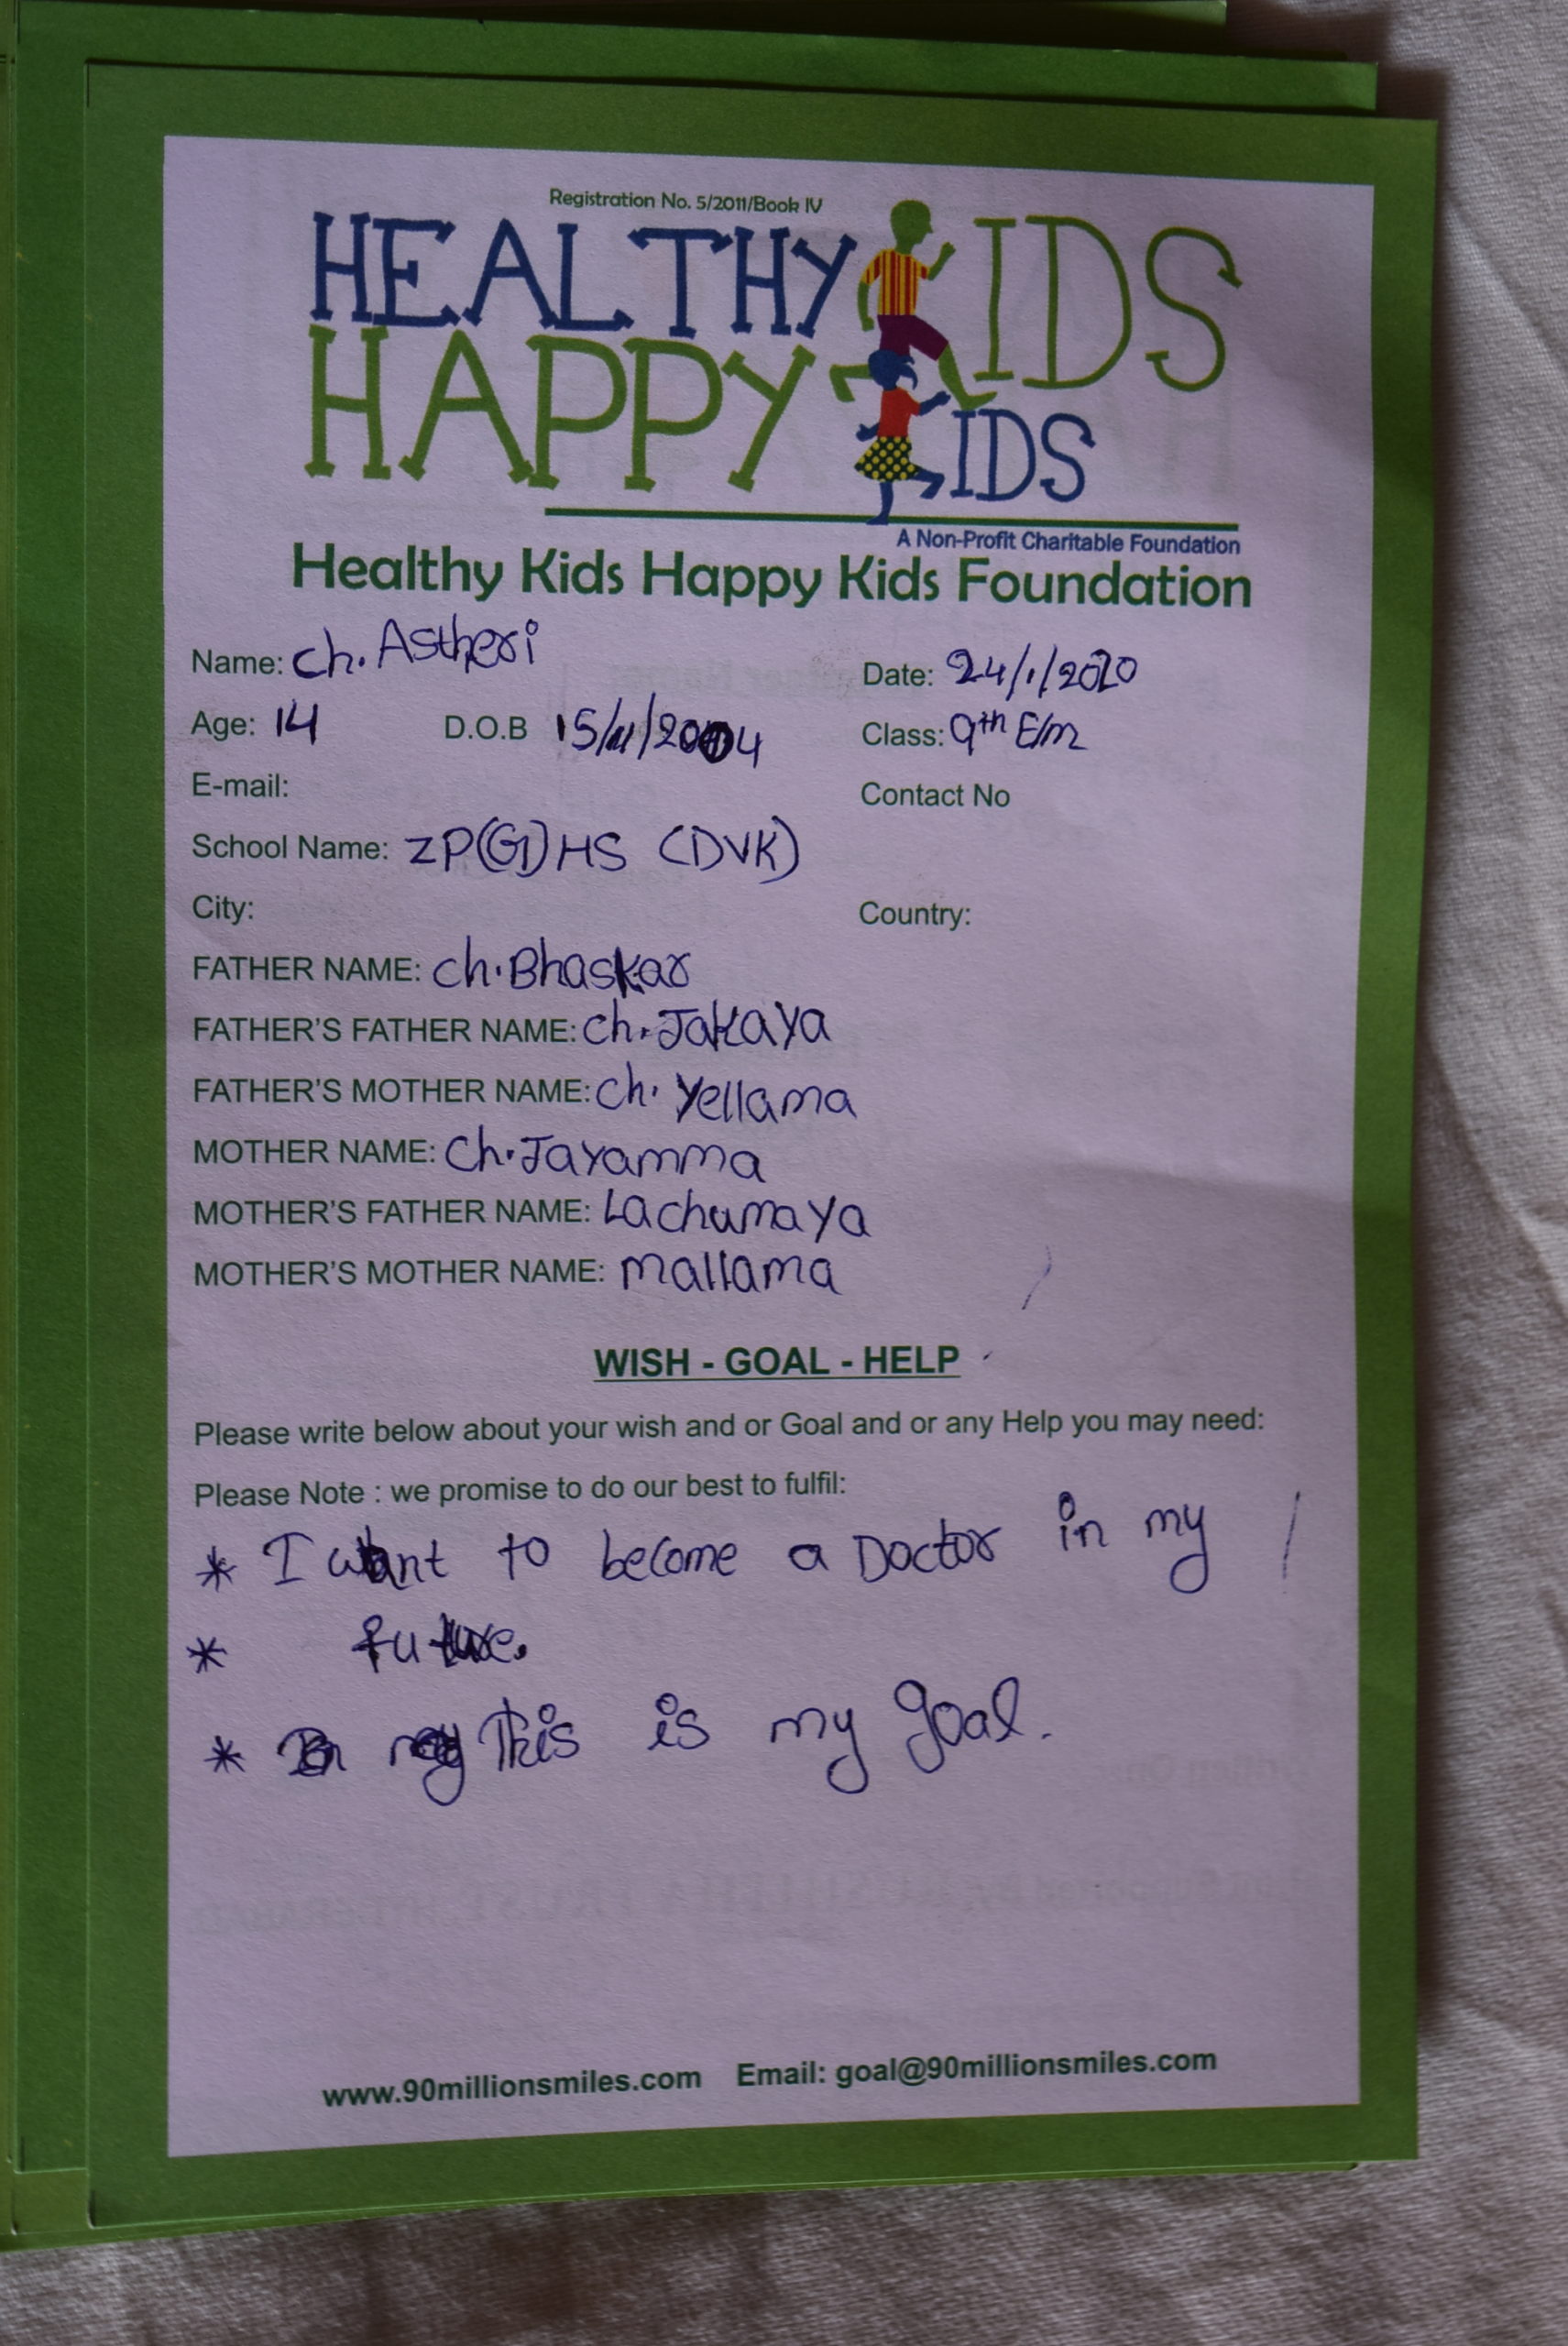 Registration No. 5/2011/Book IV
HEALTHY KIDS
HAPPY KIDS
A Non-Profit Charitable Foundation
Healthy Kids Happy Kids Foundation
Name: Ch. Astheri Date: 24/1/2020
Age: 14 D.O.B 15/11/2004 Class: 9th E/m
E-mail: Contact No
School Name: ZP(G)HS (DVK)
City: Country:
FATHER NAME: Ch. Bhaskar
FATHER'S FATHER NAME: Ch. Jakaya
FATHER'S MOTHER NAME: Ch. Yellama
MOTHER NAME: Ch. Jayamma
MOTHER'S FATHER NAME: Lachumaya
MOTHER'S MOTHER NAME: Mallama
WISH - GOAL - HELP
Please write below about your wish and or Goal and or any Help you may need:
Please Note : we promise to do our best to fulfil:
* I want to become a Doctor in my
* future.
* This is my goal.
www.90millionsmiles.com Email: goal@90millionsmiles.com